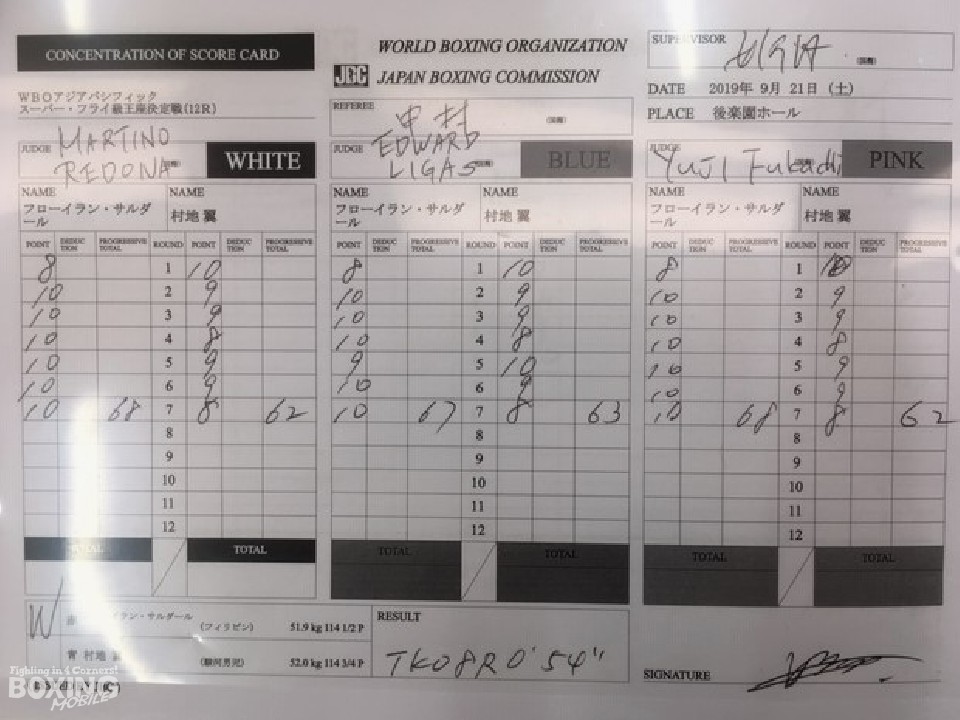 CONCENTRATION OF SCORE CARD
WORLD BOXING ORGANIZATION
JBC JAPAN BOXING COMMISSION
SUPERVISOR
WBOアジアパシフィック
スーパー・フライ級王座決定戦(12R)
REFEREE 中村
DATE 2019年 9月 21日 (土)
PLACE 後楽園ホール
JUDGE MARTINO REDONA WHITE
JUDGE EDWARD LIGAS BLUE
JUDGE Yuji Fukuchi PINK
NAME フローイラン・サルダール NAME 村地 翼
NAME フローイラン・サルダール NAME 村地 翼
NAME フローイラン・サルダール NAME 村地 翼
POINT DEDUCTION PROGRESSIVE TOTAL ROUND POINT DEDUCTION PROGRESSIVE TOTAL
POINT DEDUCTION PROGRESSIVE TOTAL ROUND POINT DEDUCTION PROGRESSIVE TOTAL
POINT DEDUCTION PROGRESSIVE TOTAL ROUND POINT DEDUCTION PROGRESSIVE TOTAL
8 1 10 8 1 10 8 1 10
10 2 9 10 2 9 10 2 9
10 3 9 10 3 9 10 3 9
10 4 8 10 4 8 10 4 8
10 5 9 9 5 10 10 5 9
10 6 9 10 6 9 10 6 9
10 68 7 8 62 10 67 7 8 63 10 68 7 8 62
8 8 8
9 9 9
10 10 10
11 11 11
12 12 12
TOTAL TOTAL TOTAL TOTAL TOTAL TOTAL
W イラン・サルダール (フィリピン) 51.9 kg 114 1/2 P
青 村地 (駿河男児) 52.0 kg 114 3/4 P
RESULT
TKO8R 0'54"
SIGNATURE
Fighting in 4 Corners!
BOXING
MOBILE